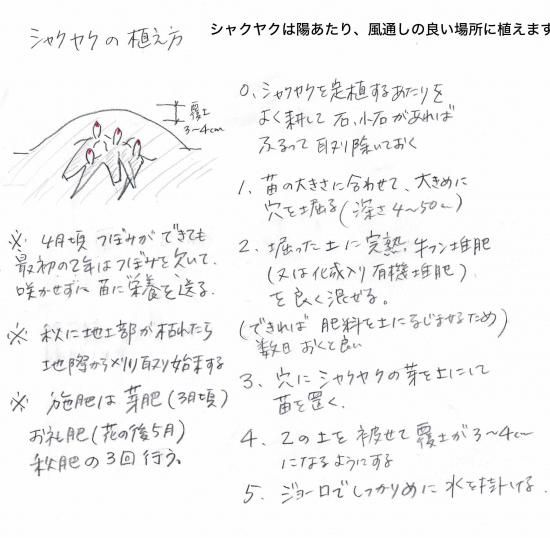 シャクヤクの植え方
シャクヤクは陽あたり、風通しの良い場所に植えます
覆土
3~4cm
※ 4月頃 つぼみができても
最初の2年はつぼみを欠いて、
咲かせずに苗に栄養を送る。
※ 秋に地上部が枯れたら
地際から刈り取り始末する
※ 施肥は 芽肥(3月頃)
お礼肥(花の後5月)
秋肥の3回行う。
0. シャクヤクを定植するあたりを
よく耕して 石、小石があれば
ふるって 取り除いておく
1. 苗の大きさに合わせて、大きめに
穴を掘る(深さ4~50cm)
2. 堀った土に完熟 牛フン堆肥
(又は化成入り有機堆肥)
を良く混ぜる。
(できれば 肥料を土になじませるため)
数日 おくと良い
3. 穴にシャクヤクの芽を上にして
苗を置く.
4. 2の土を 被せて 覆土が3~4cm
になるようにする
5. ジョーロでしっかりめに 水を掛ける.